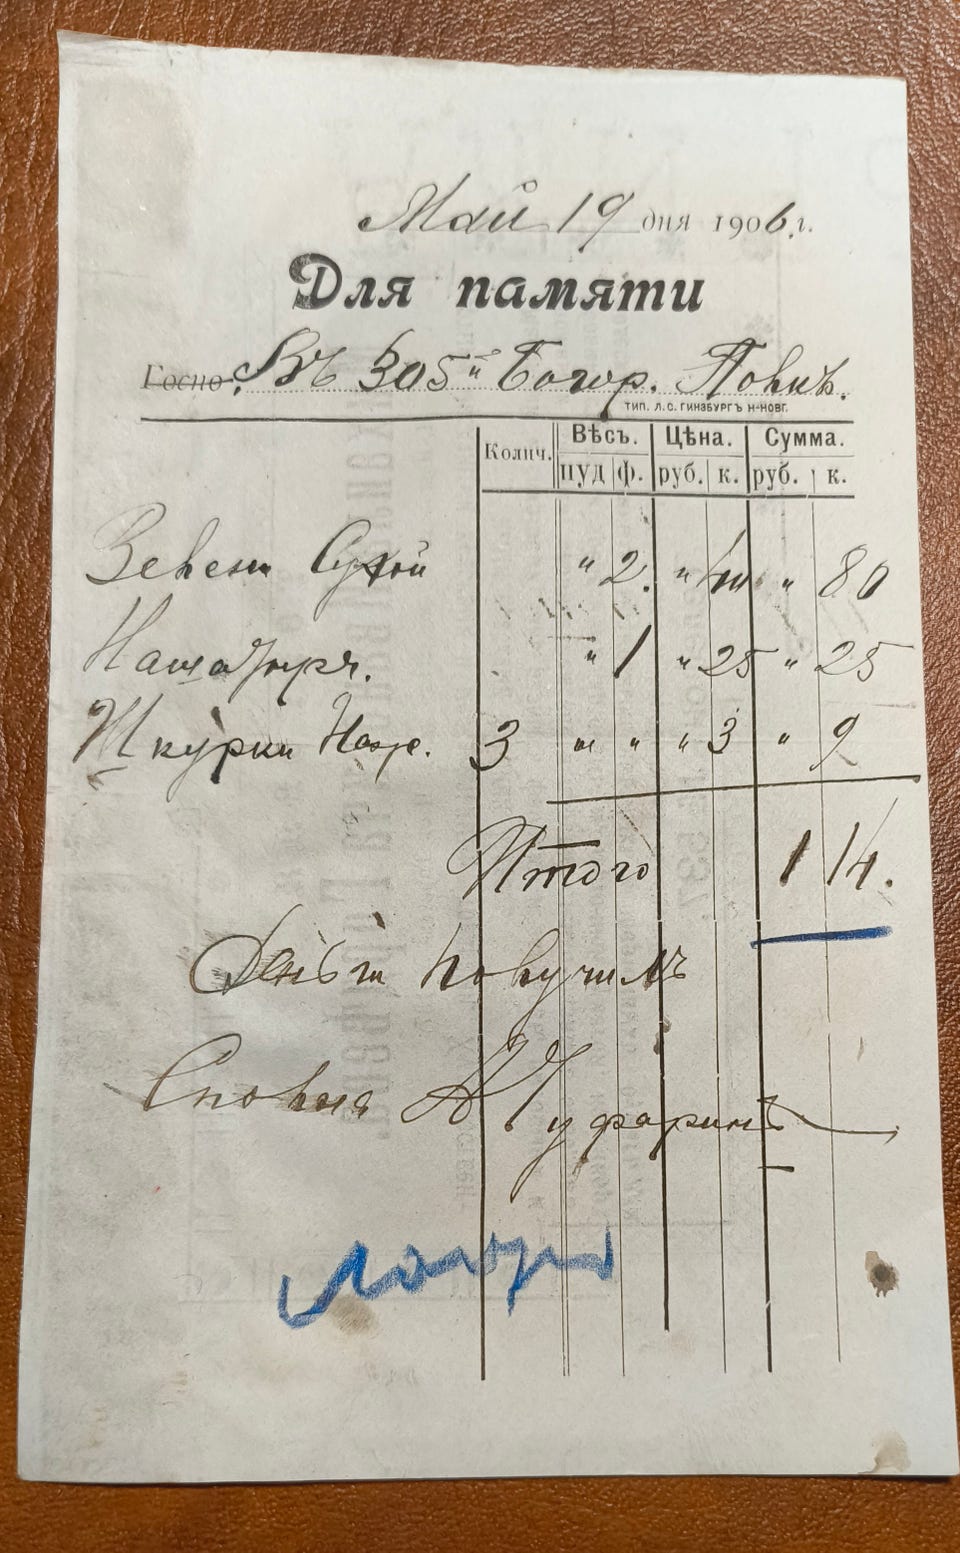 Май 19 дня 1906 г.
Для памяти
Госпо. Въ 305й Богор. Полкъ.
ТИП. Л.С. ГИНЗБУРГЪ Н-НОВГ.
Колич. Вѣсъ. Цѣна. Сумма.
пуд ф. руб. к. руб. к.
Зелени Сухой " 2. " 40 " 80
Нашатыръ. " 1 " 25 " 25
Шкурки Наж. 3 " " " 3 " 9
Итого 1 14.
Деньги получилъ